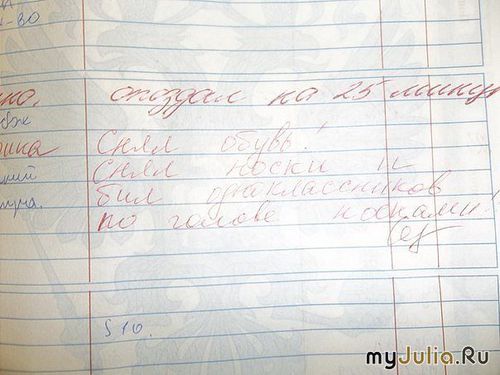 к-во
опоздал на 25 минут
Снял обувь!
снял носки и
бил одноклассников
по голове носками!
§ 10.
myJulia.Ru